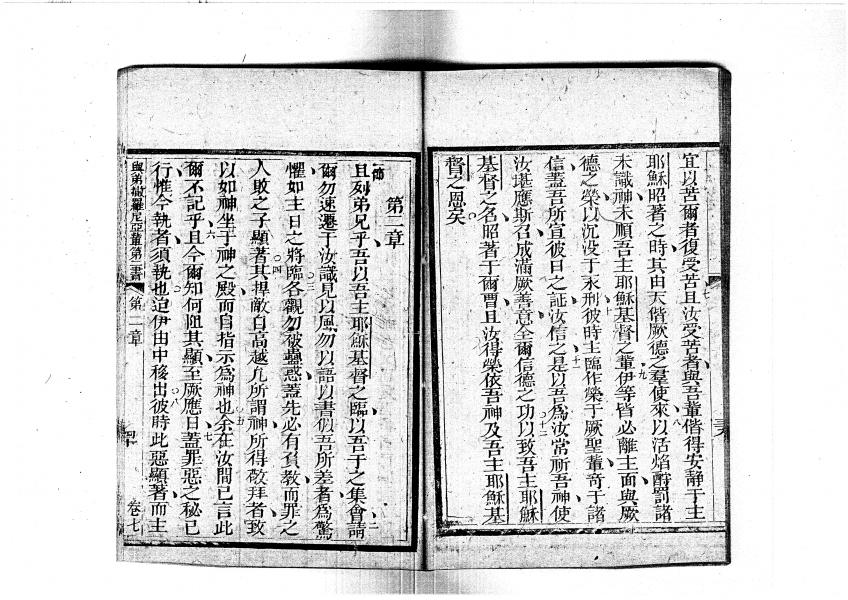 宜以苦爾者復受苦且汝受苦者與吾輩偕得安靜于主
耶穌昭著之時其由天偕厥德之羣使來以活焰酹罰諸
未識神未順吾主耶穌基督之輩伊等皆必離主面與厥
德之榮以沉没于永刑彼時主臨作榮于厥聖輩奇于諸
信蓋吾所宣彼日之証汝信之是以吾為汝常祈吾神使
汝堪應斯召成滿厥善意全爾信德之功以致吾主耶穌
基督之名昭著于爾曹且汝得榮依吾神及吾主耶穌基
督之恩矣
第二章
節
且列弟兄乎吾以吾主耶穌基督之臨以吾于之集會請
爾勿速遷于汝識見以風勿以語以書似吾所差者為驚
懼如主日之將臨各觀勿被蠱惑蓋先必有負教而罪之
人敗之子顯著其捍敵自高越凡所謂神所得敬拜者致
以如神坐于神之殿而自指示為神也余在汝間已言此
爾不記乎且今爾知何阻其顯至厥應日蓋罪惡之秘已
行惟今執者須執也迨伊由中移出彼時此惡顯著而主
第二章
卷七